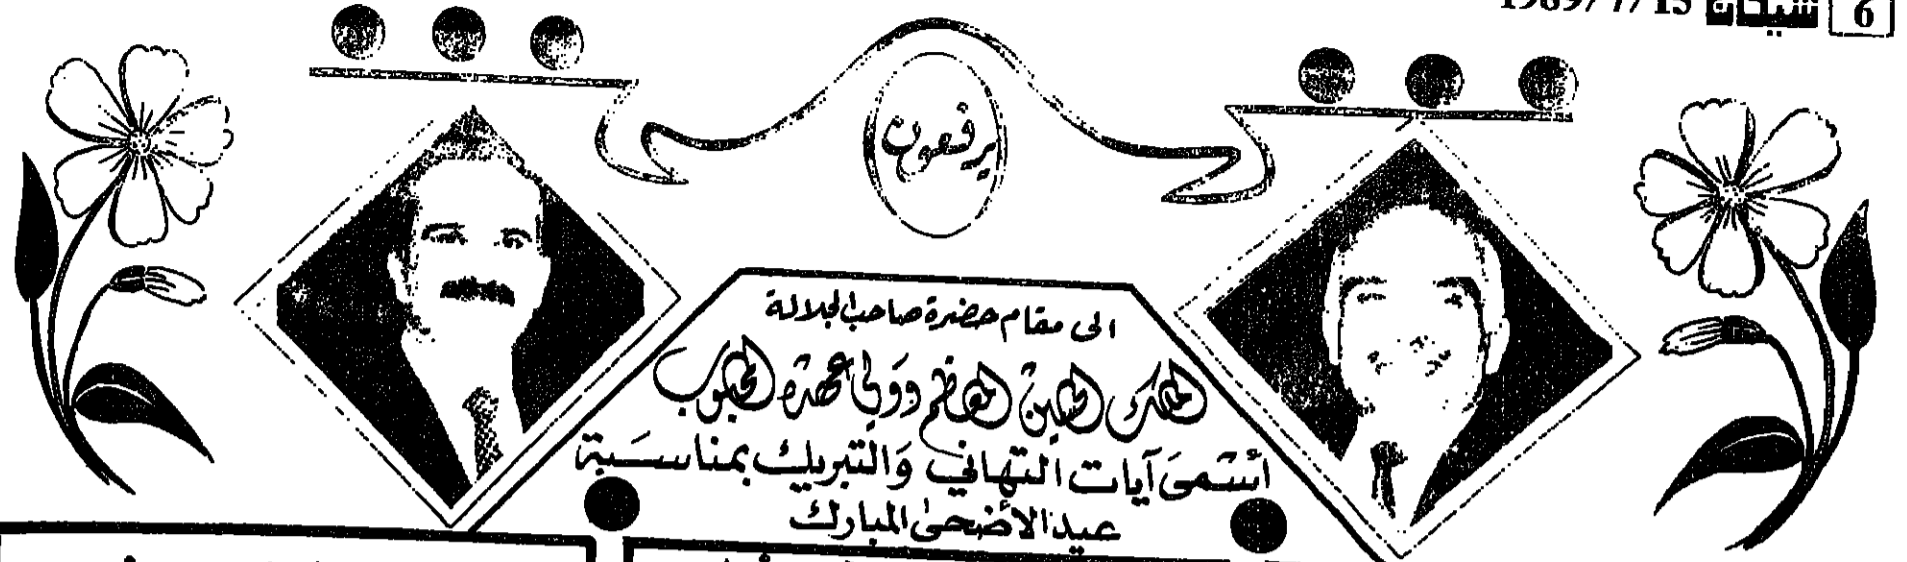 6 شيحان 1989/7/15
يرفعون
الى مقام حضرة صاحب الجلالة
الملك الحسين المعظم وولي عهده المحبوب
أسمى آيات التهاني والتبريك بمناسبة
عيد الأضحى المبارك